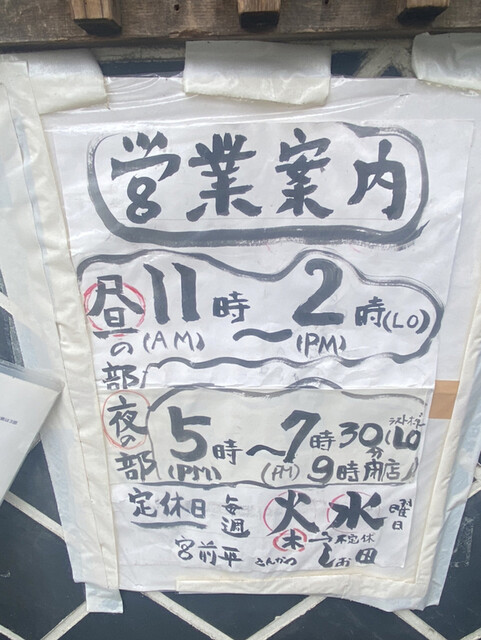 営業案内
昼の部 11時(AM)〜2時(LO)(PM)
夜の部 5時(PM)〜7時30分(LO ラストオーダー)(PM)
9時閉店
定休日 毎週 火 水 曜日
木 不定休
宮前平 さんかつ しお田